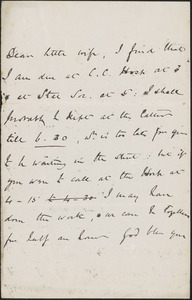 Dear little wife, I find that
I am due at C.C. Hosp at 3
& at Stat Soc. at 5: I shall
probably be kept at the latter
till 6.30, wh is too late for you
to be waiting in the street: but if
you were to call at the Hosp at
4-15 to 4-30 I may have
done the work, & we can be together
for half an hour God bless you